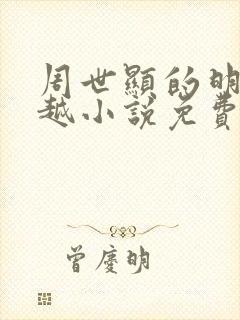 周世顯的明
越小說免費
曾慶明